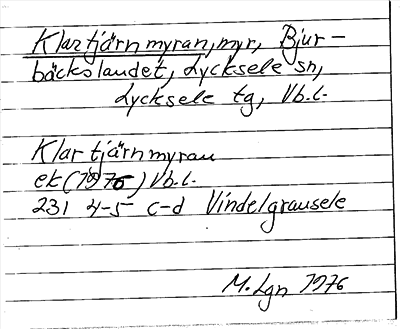 Klartjärnmyran, myr, Bjur-
bäckslandet, Lycksele sn,
Lycksele tg, Vb.l.
Klartjärnmyran
ek (1976) Vb.l.
231 4-5 c-d Vindelgransele
M. Lgn 1976